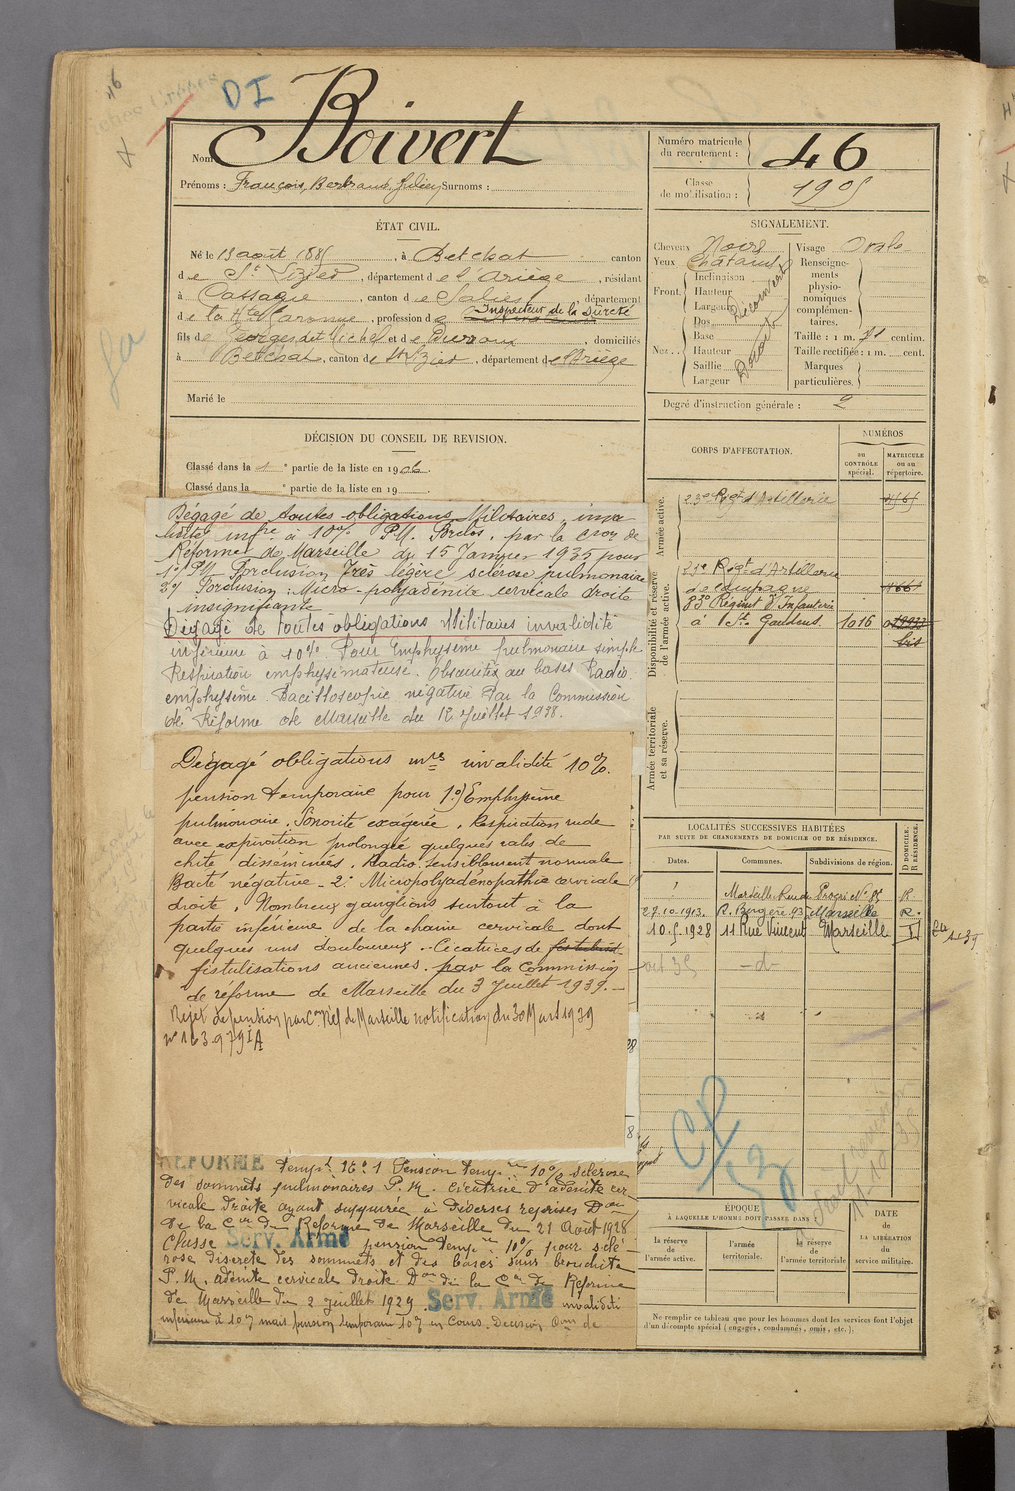 46
DI
Boivert
Nom
Prénoms : François, Bertrand, Julien Surnoms :
Numéro matricule du recrutement : 46
Classe de mobilisation : 1905
ÉTAT CIVIL.
Né le 13 août 1885, à Betchat canton
de St Lizier, département de l'Ariège, résidant
à Cassagne, canton de Salies, département
de la Hte Garonne, profession de Inspecteur de la Sûreté
fils de Georges dit Michel et de Durran, domiciliés
à Betchat, canton de St Lizier, département de l'Ariège
Marié le
SIGNALEMENT.
Cheveux Noirs
Yeux Châtains
Front. Inclinaison
Hauteur
Largeur
Découvert
Nez. Dos
Base
Hauteur
Saillie
Largeur
Visage Ovale
Renseigne-
ments
physio-
nomiques
complémen-
taires.
Taille : 1 m. 71 centim.
Taille rectifiée : 1 m. cent.
Marques
particulières.
Degré d'instruction générale : 2
DÉCISION DU CONSEIL DE REVISION.
Classé dans la 1 e partie de la liste en 1906.
Classé dans la e partie de la liste en 19
Dégagé de toutes obligations Militaires inva
lidité infre à 10% P.M. Forclos, par la Cion de
Réforme de Marseille du 15 Janvier 1935 pour
1° P.M. Forclusion Très légère sclérose pulmonaire
2° Forclusion : Micro-polyadénite cervicale droite
insignifiante
Dégagé de toutes obligations Militaires invalidité
inférieure à 10% Pour Emphysème pulmonaire simple
Respiration emphysémateuse. Obscurités au bases Radio.
emphysème. Bacilloscopie négative Par la Commission
de Réforme de Marseille du 12 Juillet 1938.
Dégagé obligations mres invalidité 10%.
pension temporaire pour 1°) Emphysème
pulmonaire. Sonorité exagérée. Respiration rude
avec expiration prolongée quelques rales de
chite disséminées. Radio. sensiblement normale
Bacité négative - 2: Micropolyadénopathie cervicale
droite. Nombreux ganglions surtout à la
partie inférieure de la chaine cervicale dont
quelques uns douloureux. - Cicatrices de
fistulisations anciennes. par la Commission
de réforme de Marseille du 3 Juillet 1939.-
Rejet de pension par Réf de Marseille notification du 30 Mars 1939
n° 163.979 IA
RÉFORMÉ tempt N° 1 Pension tempre 10% sclérose
des sommets pulmonaires P.M. cicatrice d'adénite cer-
vicale droite ayant suppurée à diverses reprises Don
de la Con de Réforme de Marseille du 21 Août 1928
Classé Serv. Armé pension tempre 10% pour sclé-
rose discrète des sommets et des bases sans bronchite
P.M. adénite cervicale droite Don de la Con de Réforme
de Marseille du 2 Juillet 1929. Serv. Armé invalidité
inférieure à 10% mais pension temporaire 10% en cours. Décision Com de
CORPS D'AFFECTATION.
NUMÉROS
au CONTRÔLE spécial.
MATRICULE ou au répertoire.
Armée active.
23e Régt d'Artillerie
Disponibilité et réserve de l'armée active.
21e Régt d'Artillerie
de campagne
83e Régiment d'Infanterie
à St Gaudens 1016
bis
Armée territoriale et sa réserve.
LOCALITÉS SUCCESSIVES HABITÉES
PAR SUITE DE CHANGEMENTS DE DOMICILE OU DE RÉSIDENCE.
D DOMICILE. R RÉSIDENCE.
Dates. Communes. Subdivisions de région.
Marseille Rue du Progrès N° 85 R.
27.10.1913. R. Bergère 93 Marseille R.
10.5.1928 11 Rue Vincent Marseille D
oct 35 - d -
CR
ÉPOQUE
À LAQUELLE L'HOMME DOIT PASSER DANS
la réserve de l'armée active.
l'armée territoriale.
la réserve de l'armée territoriale
DATE de LA LIBÉRATION du service militaire.
Ne remplir ce tableau que pour les hommes dont les services font l'objet
d'un décompte spécial (engagés, condamnés, omis, etc.).